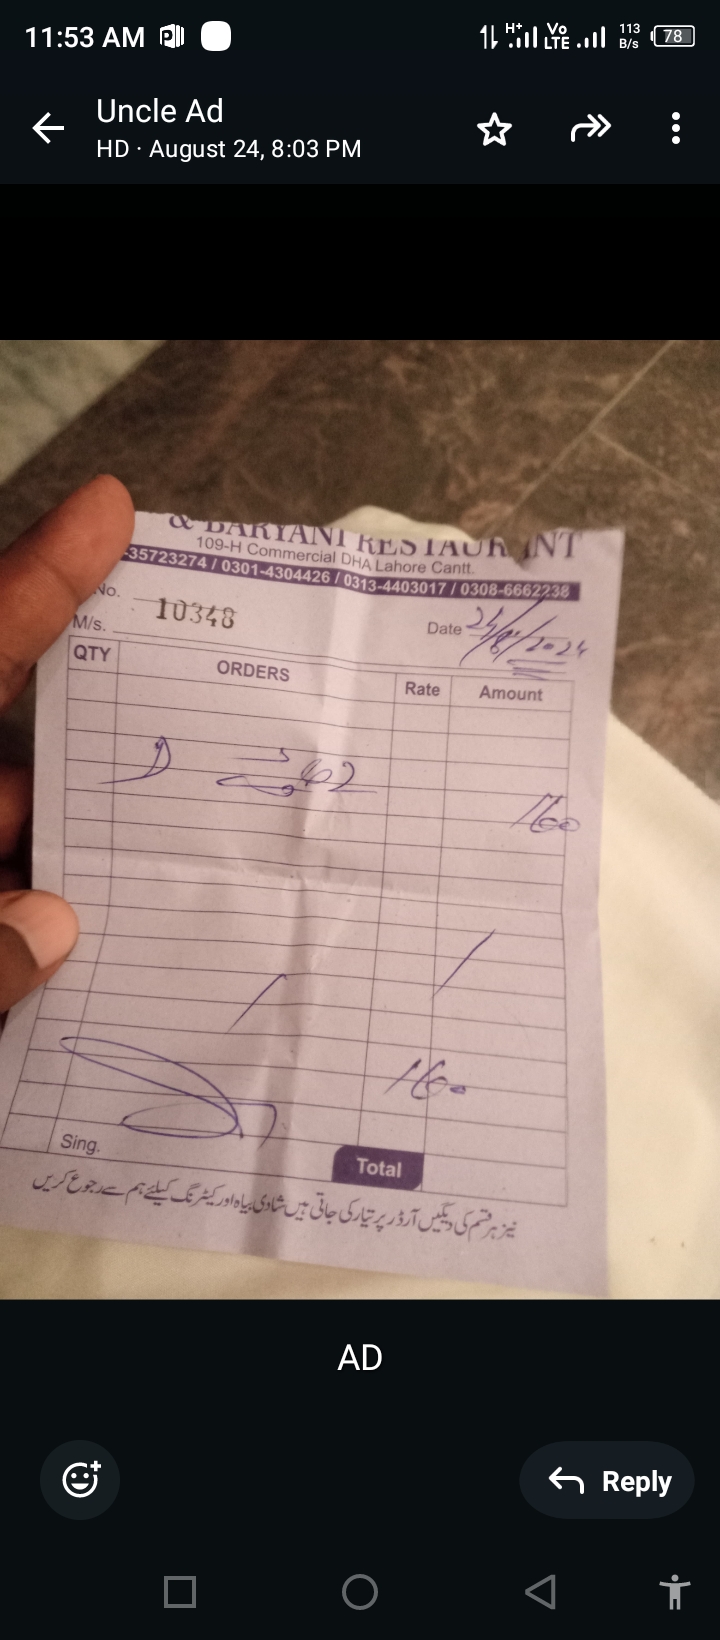 11:53 AM
H+ Vo LTE 113 B/s 78
Uncle Ad
HD · August 24, 8:03 PM
& BARYANI RESTAURANT
109-H Commercial DHA Lahore Cantt.
-35723274 / 0301-4304426 / 0313-4403017 / 0308-6662238
No. 10348
M/s. Date 24/8/2024
QTY ORDERS Rate Amount
1600
1600
Sing. Total
نیز ہر قسم کی دیگیں آرڈر پر تیار کی جاتی ہیں شادی بیاہ اور کیٹرنگ کیلئے ہم سے رجوع کریں
AD
Reply